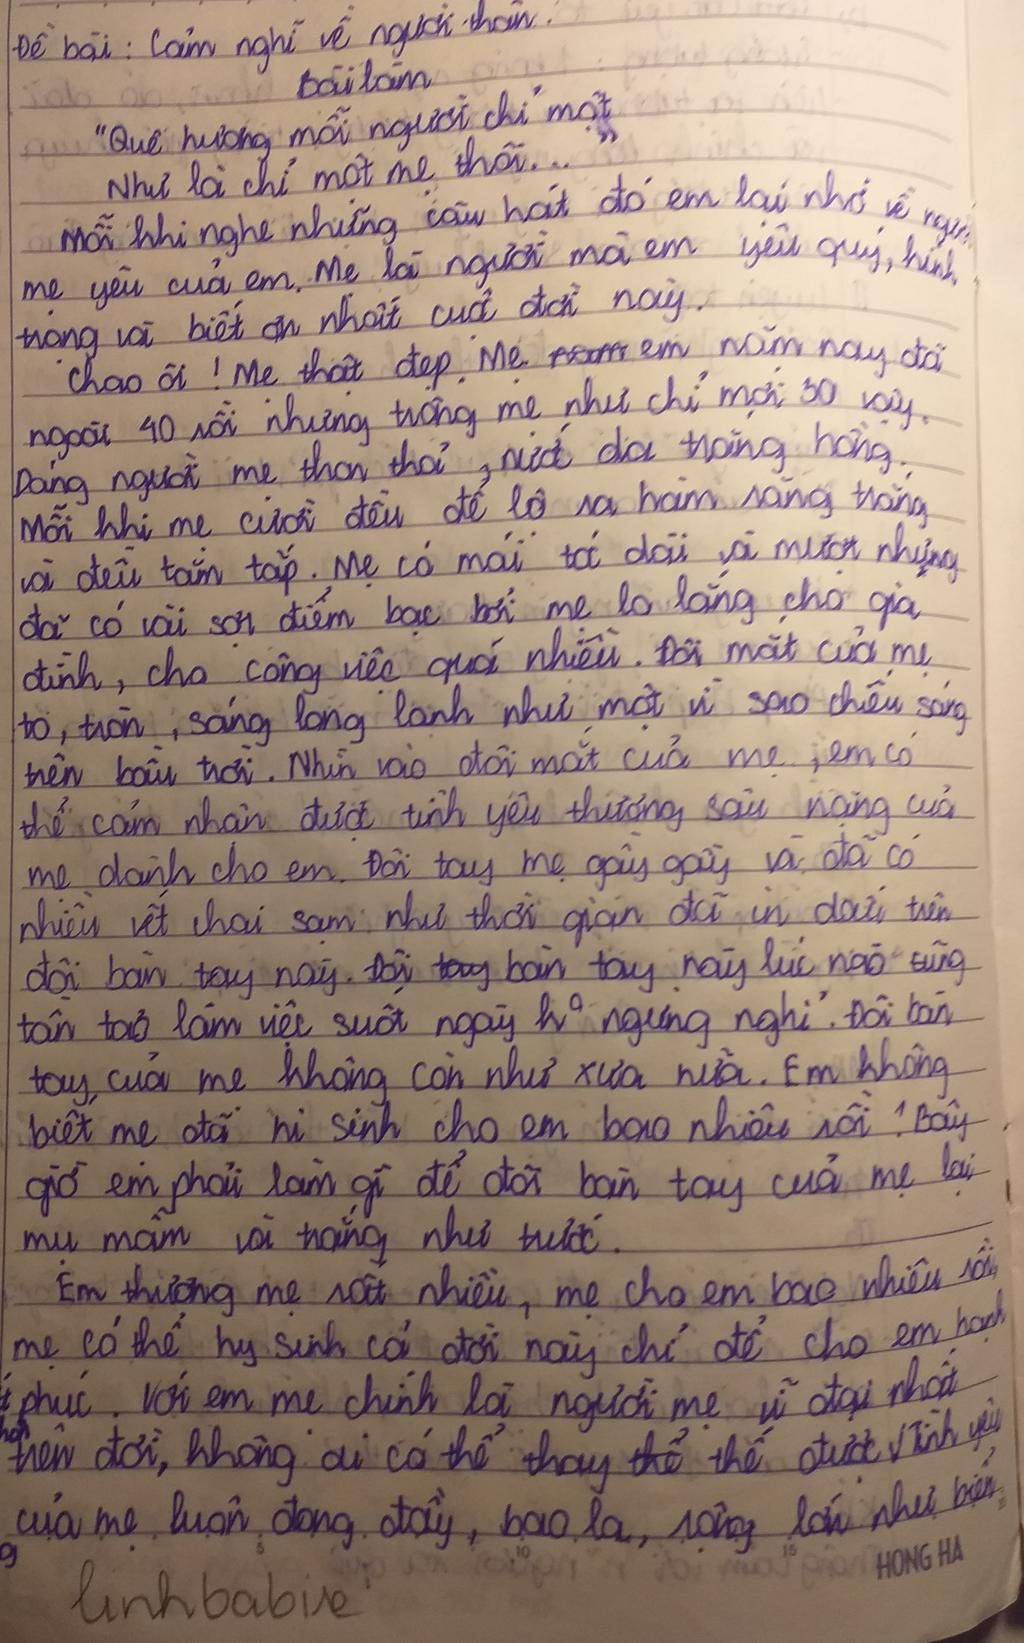 Đề bài: Cảm nghĩ về người thân.
Bài làm
"Quê hương mỗi người chỉ một
Như là chỉ một mẹ thôi..."
Mỗi khi nghe những câu hát đó em lại nhớ về người
mẹ yêu của em. Mẹ là người mà em yêu quý, kính
trọng và biết ơn nhất cuộc đời này.
Chao ôi! Mẹ thật đẹp. Mẹ em năm nay đã
ngoài 40 rồi nhưng trông mẹ như chỉ mới 30 vậy.
Dáng người mẹ thon thả, nước da trắng hồng.
Mỗi khi mẹ cười đều để lộ ra hàm răng trắng
và đều tăm tắp. Mẹ có mái tóc dài và mượt nhưng
đã có vài sợi điểm bạc bởi mẹ lo lắng cho gia
đình, cho công việc quá nhiều. Đôi mắt của mẹ
to, tròn, sáng long lanh như một vì sao chiếu sáng
trên bầu trời. Nhìn vào đôi mắt của mẹ, em có
thể cảm nhận được tình yêu thương sâu nặng của
mẹ dành cho em. Đôi tay mẹ gầy gầy và đã có
nhiều vết chai sạm như thời gian đã in dấu trên
đôi bàn tay này. Đôi bàn tay này lúc nào cũng
tần tảo làm việc suốt ngày ko ngưng nghỉ. Đôi bàn
tay của mẹ không còn như xưa nữa. Em không
biết mẹ đã hi sinh cho em bao nhiêu rồi! Bây
giờ em phải làm gì để đôi bàn tay của mẹ lại
mụ mẫm và trắng như trước.
Em thương mẹ rất nhiều, mẹ cho em bao nhiêu rồi,
mẹ có thể hy sinh cả đời này chỉ để cho em hạnh
phúc. Với em mẹ chính là người mẹ vĩ đại nhất
trên đời, không ai có thể thay thế được. Tình yêu
của mẹ luôn đong đầy, bao la, rộng lớn như biển
HONG HA
linhbabive